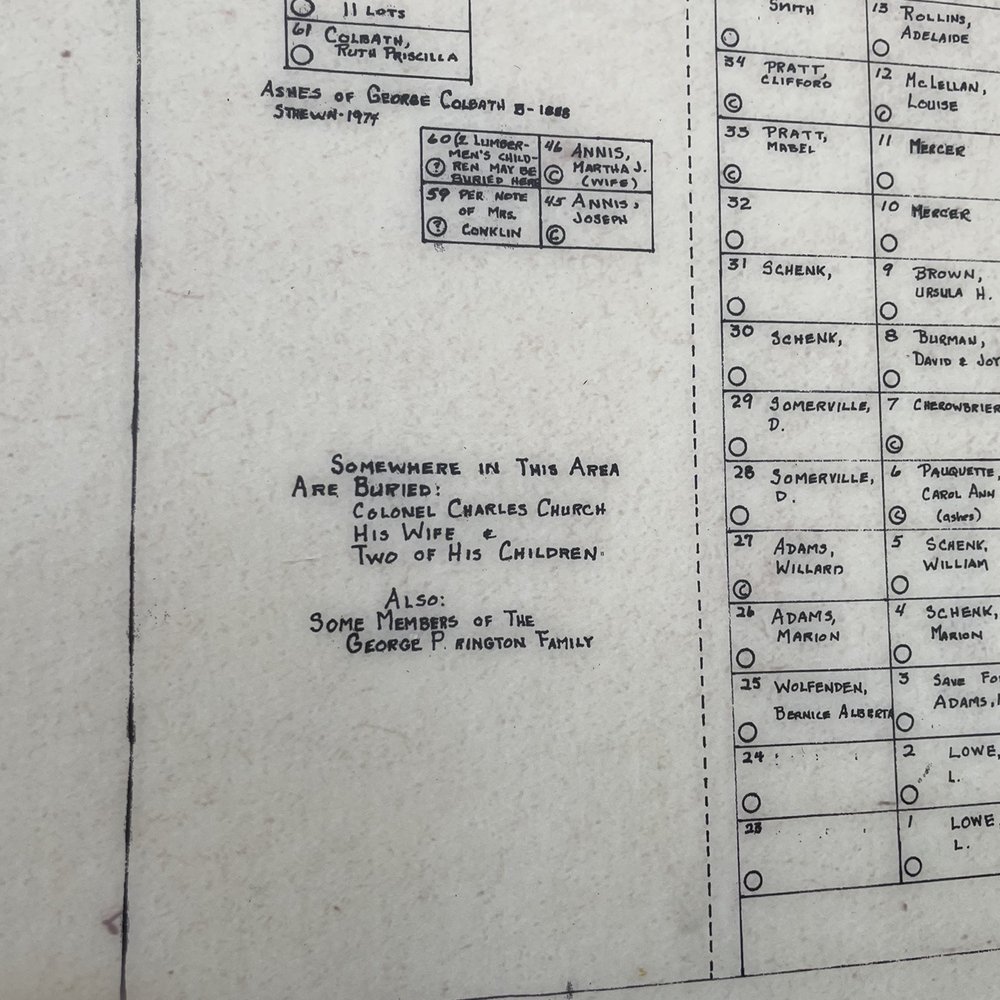 11 LOTS
61 COLBATH,
RUTH PRISCILLA
ASHES OF GEORGE COLBATH B-1888
STREWN-1974
60 (2 LUMBER-
MEN'S CHILD-
? REN MAY BE
BURIED HERE
59 PER NOTE
OF MRS.
? CONKLIN
46 ANNIS,
MARTHA J.
C (WIFE)
45 ANNIS,
JOSEPH
C
SOMEWHERE IN THIS AREA
ARE BURIED:
COLONEL CHARLES CHURCH
HIS WIFE &
TWO OF HIS CHILDREN.
ALSO:
SOME MEMBERS OF THE
GEORGE P. RINGTON FAMILY
SMITH
34 PRATT,
CLIFFORD
C
33 PRATT,
MABEL
C
32
31 SCHENK,
30 SCHENK,
29 SOMERVILLE,
D.
28 SOMERVILLE,
D.
27 ADAMS,
WILLARD
C
26 ADAMS,
MARION
25 WOLFENDEN,
BERNICE ALBERTA
24
23
13 ROLLINS,
ADELAIDE
12 MCLELLAN,
LOUISE
C
11 MERCER
10 MERCER
9 BROWN,
URSULA H.
8 BURMAN,
DAVID & JOY
7 CHEROWBRIER
C
6 PAUQUETTE,
CAROL ANN
C (ashes)
5 SCHENK,
WILLIAM
4 SCHENK,
MARION
3 SAVE FO
ADAMS,
2 LOWE,
L.
1 LOWE
L.